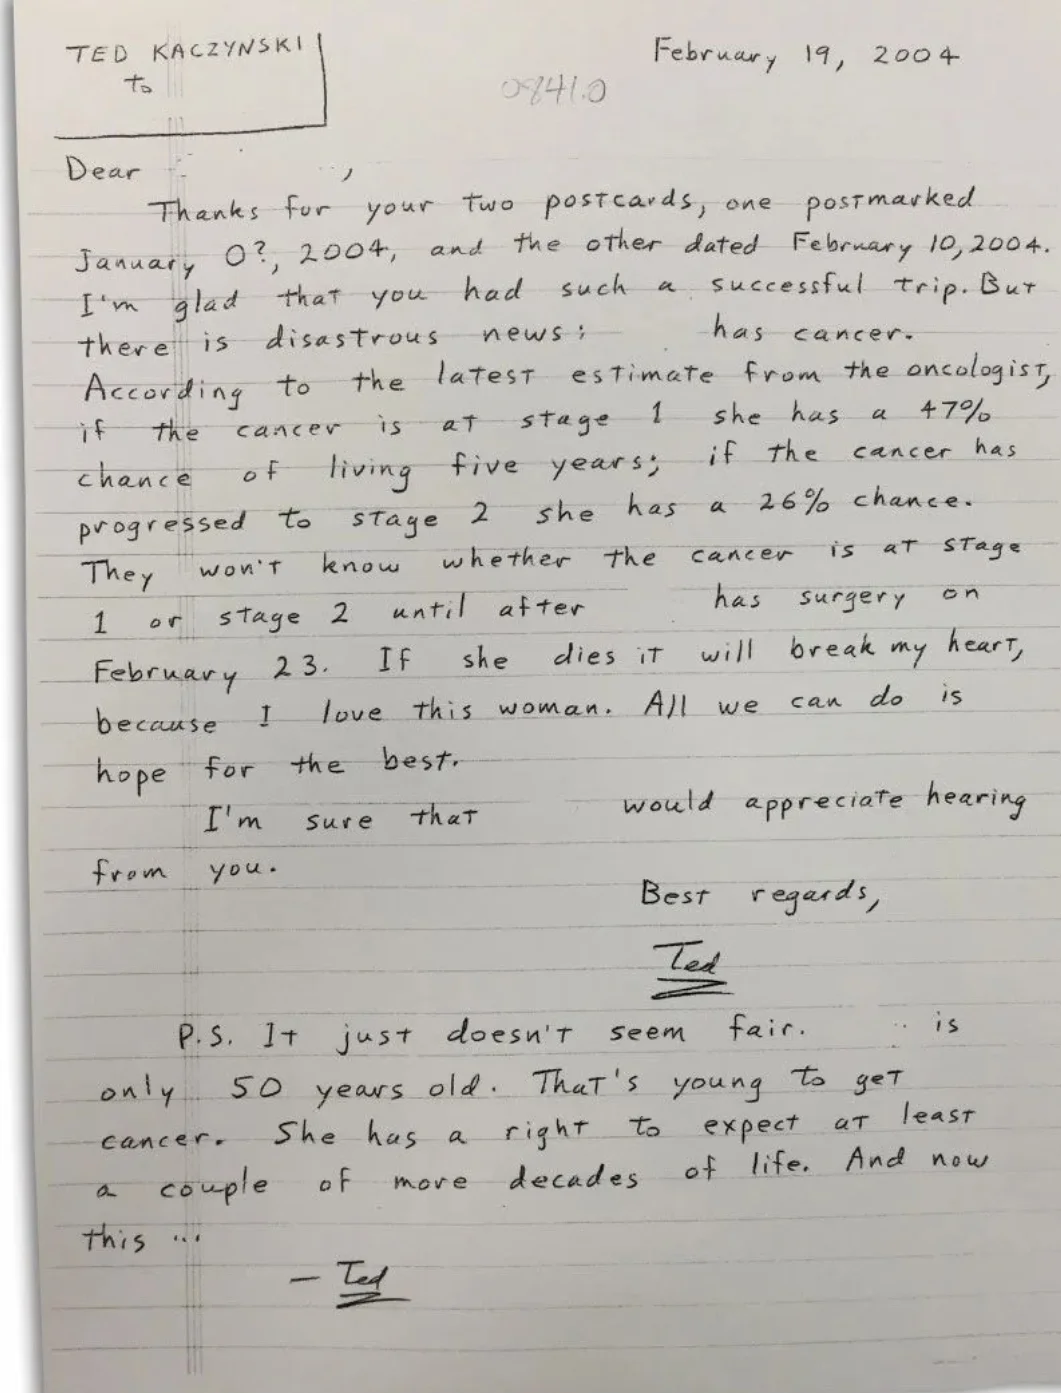 TED KACZYNSKI
to
February 19, 2004
0841.0
Dear ,
Thanks for your two postcards, one postmarked
January 0?, 2004, and the other dated February 10, 2004.
I'm glad that you had such a successful trip. But
there is disastrous news: has cancer.
According to the latest estimate from the oncologist,
if the cancer is at stage 1 she has a 47%
chance of living five years; if the cancer has
progressed to stage 2 she has a 26% chance.
They won't know whether the cancer is at stage
1 or stage 2 until after has surgery on
February 23. If she dies it will break my heart,
because I love this woman. All we can do is
hope for the best.
I'm sure that would appreciate hearing
from you.
Best regards,
Ted
P.S. It just doesn't seem fair. is
only 50 years old. That's young to get
cancer. She has a right to expect at least
a couple of more decades of life. And now
this ...
— Ted